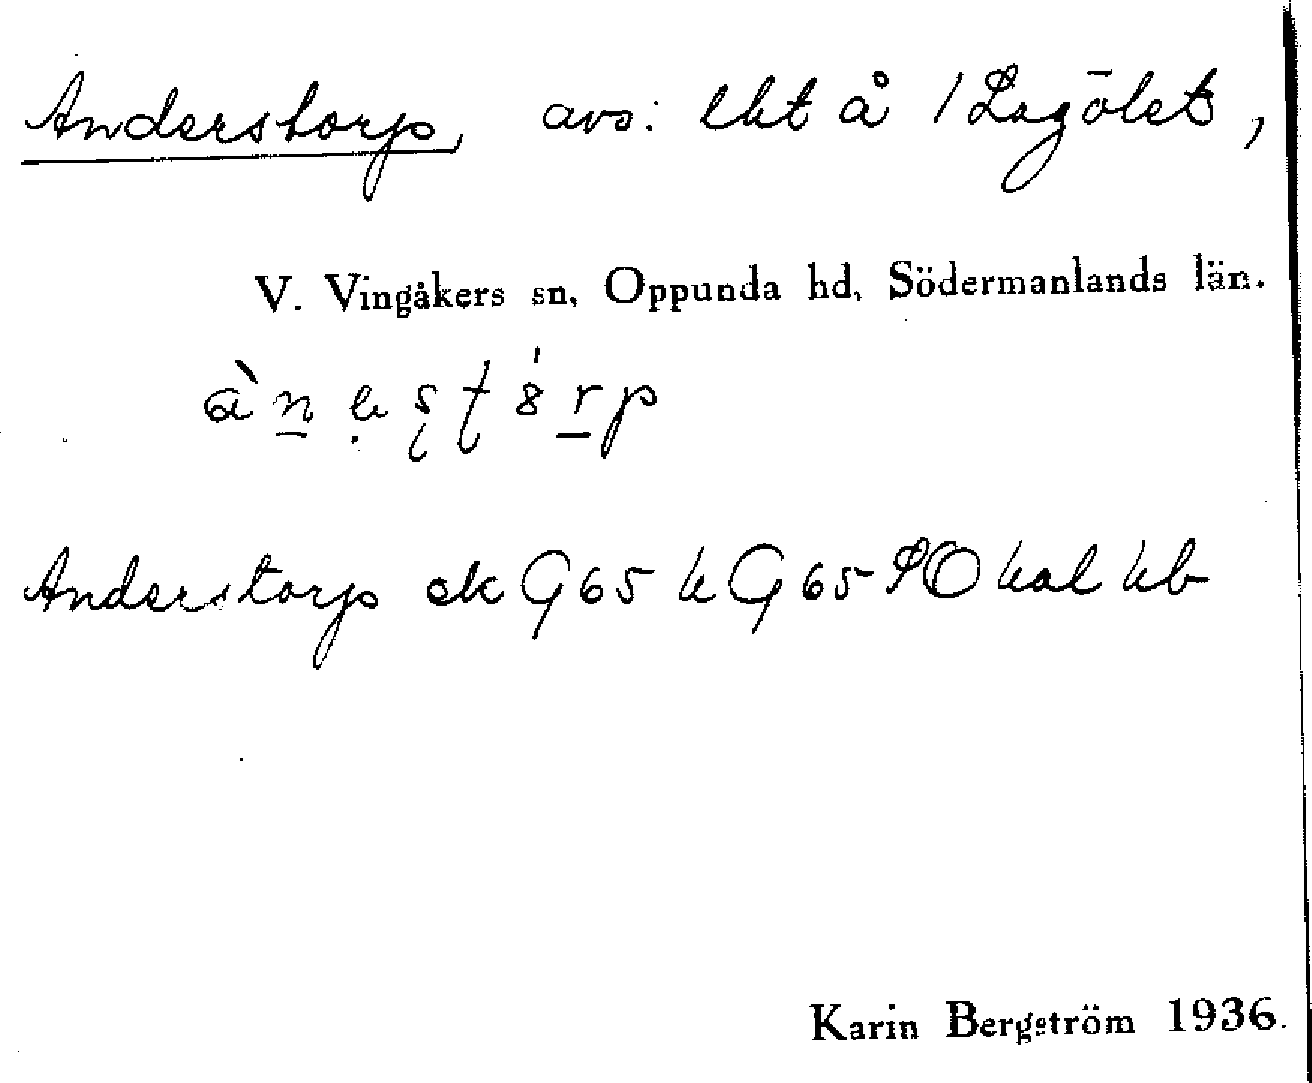 Anderstorp, avs: lht å 1 Lagölet,
V. Vingåkers sn, Oppunda hd, Södermanlands län.
Anderstorp ek G65 k G65 SO hal hb
Karin Bergström 1936.